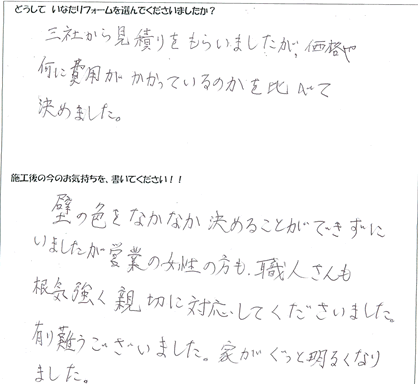 どうして いなたリフォームを選んでくださいましたか?
三社から見積りをもらいましたが、価格や
何に費用がかかっているのかを比べて
決めました。
施工後の今のお気持ちを、書いてください!!
壁の色をなかなか決めることができずに
いましたが営業の女性の方も、職人さんも
根気強く親切に対応してくださいました。
有り難うございました。家がぐっと明るくなり
ました。